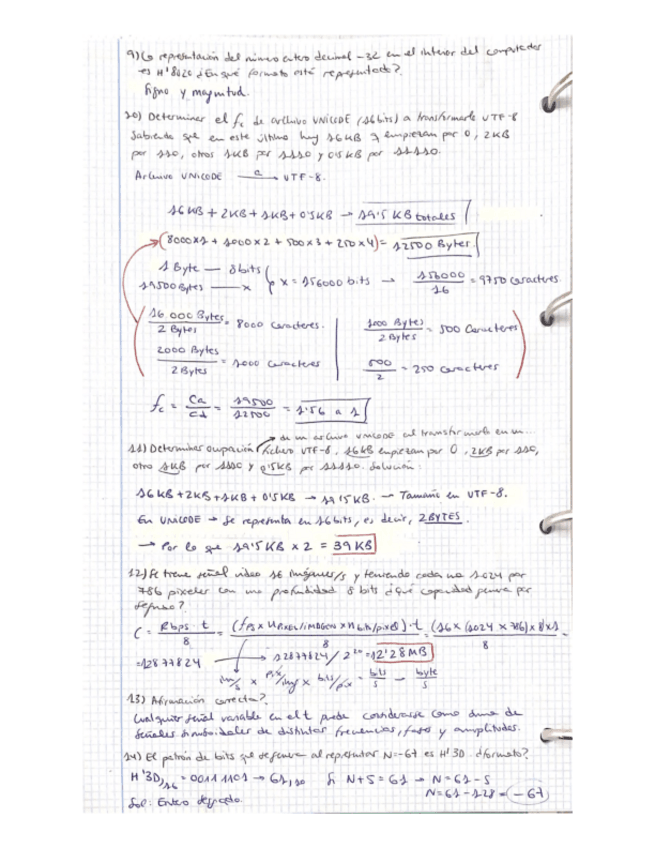 9) La representación del número entero decimal -32 en el interior del computador
es H'8020 ¿En qué formato está representado?
Signo y magnitud.
10) Determinar el fc de archivo UNICODE (16 bits) a transformarlo UTF-8
Sabiendo que en este último hay 16KB q empiezan por 0, 2KB
por 110, otros 1KB por 1110 y 0'5KB por 11110.
Archivo UNICODE —a→ UTF-8.
16KB + 2KB + 1KB + 0'5KB → 19'5 KB totales
(8000x1 + 1000x2 + 500x3 + 250x4) = 12500 Bytes
1 Byte — 8bits
19500Bytes — x
x = 156000 bits → 156000/16 = 9750 caracteres
16.000 Bytes/2 Bytes = 8000 Caracteres.
1000 Bytes/2 Bytes = 500 Caracteres
2000 Bytes/2 Bytes = 1000 caracteres
500/2 = 250 caracteres
fc = Ca/Cd = 19500/12500 = 1'56 a 1
de un archivo UNICODE al transformarlo en un...
11) Determinar ocupación fichero UTF-8, 16KB empiezan por 0, 2KB por 110,
otro 1KB por 1110 y 0'5KB por 11110. Solución:
16KB + 2KB + 1KB + 0'5KB → 19'5KB. → Tamaño en UTF-8.
En UNICODE → Se representa en 16bits, es decir, 2BYTES.
→ Por lo que 19'5KB x 2 = 39KB
12) Se tiene señal video 16 imágenes/s y teniendo cada una 1024 por
786 pixeles con una profundidad 8 bits ¿qué capacidad genera por
segundo?
C = Rbps · t/8 = (fps x Npixel/imagen x nbits/pixel) · t/8 = (16 x (1024 x 786) x 8)x1/8 =
= 12877824 → 12877824/2^20 = 12'28MB
im/s x pix/img x bits/pix = bits/s → byte/s
13) Afirmación correcta?
Cualquier señal variable en el t puede considerarse como suma de
señales sinusoidales de distintas frecuencias, fases y amplitudes.
14) El patrón de bits que se genera al representar N=-67 es H'3D. ¿formato?
H'3D)16 = 00111101 → 61)10 Si N+S = 61 → N = 61-S
N = 61-128 = -67
Sol: Entero sesgado.